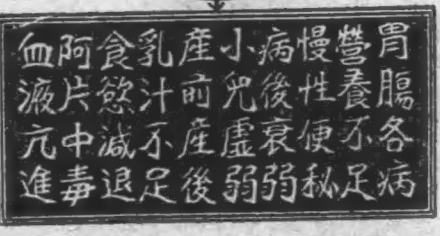 胃腸各病
營養不足
慢性便秘
病後衰弱
小兒虛弱
產前產後
乳汁不足
食慾減退
阿片中毒
血液亢進